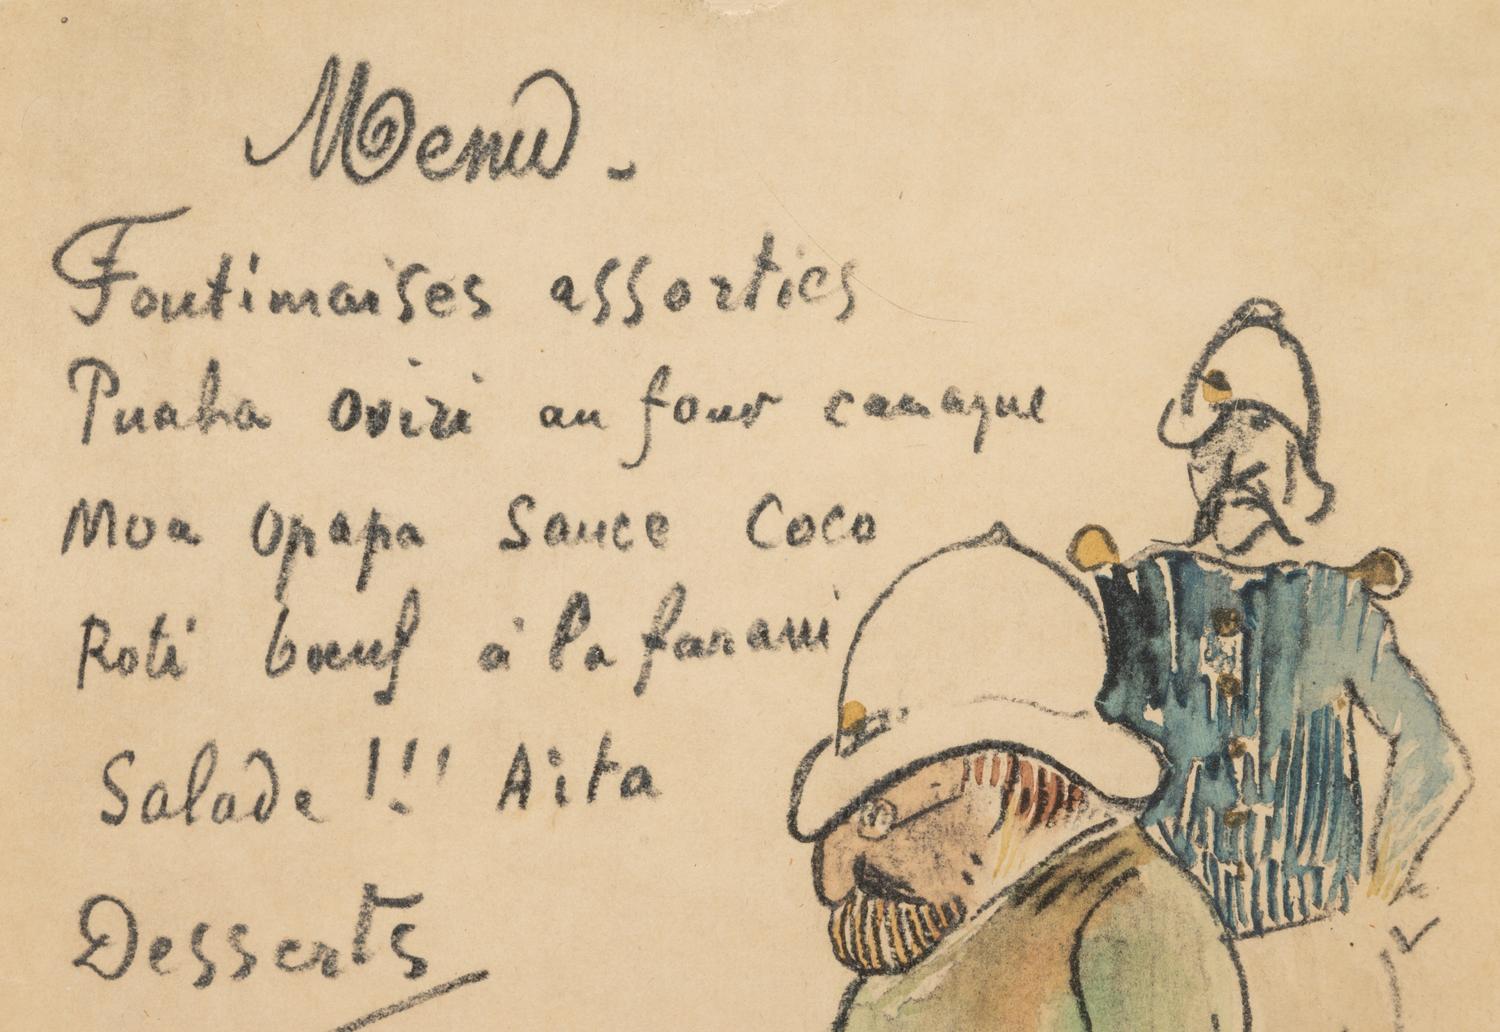 Menu.
Foutimaises assorties
Puaha oviri au four canaque
Moa Opapa Sauce Coco
Roti bœuf à la farani
Salade !!! Aita
Desserts